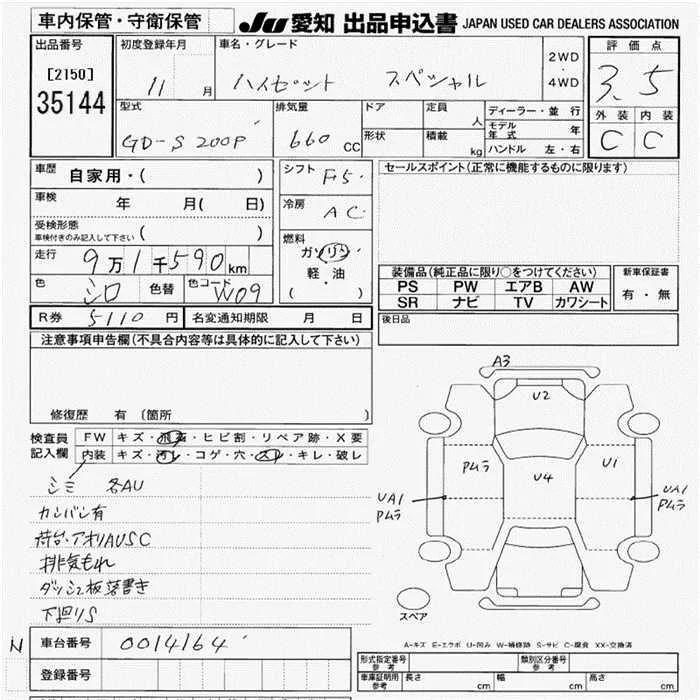 車内保管・守衛保管
JU 愛知 出品申込書 JAPAN USED CAR DEALERS ASSOCIATION
出品番号 初度登録年月 車名・グレード 評価点
[2150] 11 月 ハイゼット スペシャル 2WD ・ 4WD 3.5
35144
型式 排気量 ドア 定員 人 ディーラー・並行 外装 内装
GD-S200P 660 CC 形状 積載 kg モデル年式 年 C C
ハンドル 左・右
車歴 自家用・( ) シフト F5 セールスポイント(正常に機能するものに限ります)
車検 年 月( 日) 冷房 AC
受検形態
車検付きのみ記入して下さい( )
燃料
走行 9万1千590km ガソリン
軽・油
( )
装備品(純正品に限り○をつけてください) 新車保証書
PS PW エアB AW 有・無
SR ナビ TV カワシート
色 シロ 色替 色コード W09
R券 5110 円 名変通知期限 月 日 後日品
注意事項申告欄(不具合内容等は具体的に記入して下さい)
修復歴 有 (箇所 )
検査員 FW キズ・爪キズ・ヒビ割・リペア跡・X要
記入欄 内装 キズ・汚レ・コゲ・穴・スレ・キレ・破レ
シミ 各AU
カンバン有
荷台・アオリAUSC
排気もれ
ダッシュ板落書き
下廻りS
A3
U2
Pムラ U4 U1
UA1 Pムラ
UA1 Pムラ
スペア
A-キズ E-エクボ U-凹み W-補修跡 S-サビ C-腐食 XX-交換済
N 車台番号 0014164
登録番号
形式指定番号 参考 類別区分番号 参考
車庫証明用 参考 長さ cm 幅 cm 高さ cm